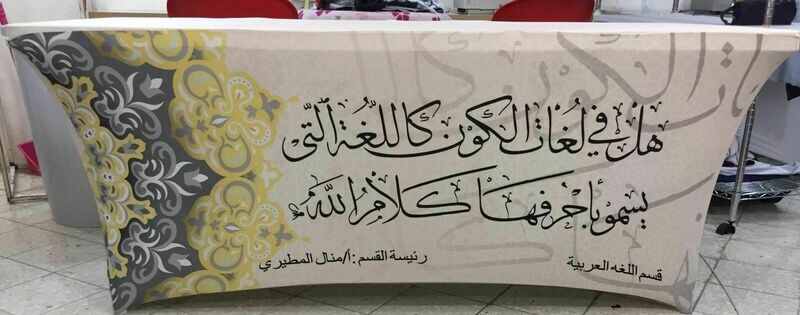 هل في لغات الكون كاللغة التي
يسمو بأحرفها كلام الله
قسم اللغه العربية
رئيسة القسم :أ/منال المطيري